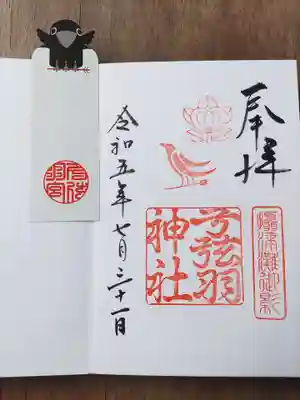 奉拝
灘御影
弓弦羽
神社
令和五年七月三十一日
弓弦
羽宮